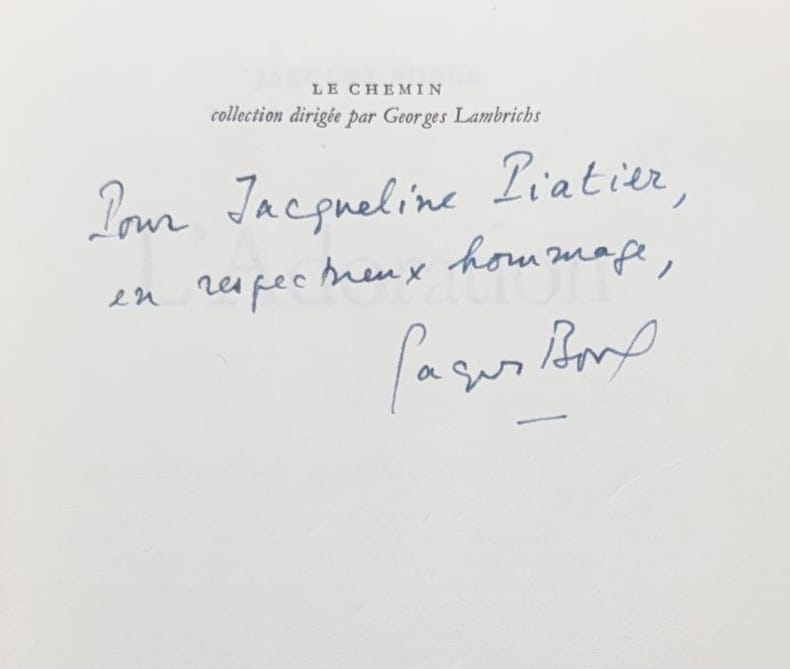 LE CHEMIN
collection dirigée par Georges Lambrichs
Pour Jacqueline Piatier,
en respectueux hommage,
Jacques Borel
L'Adoration